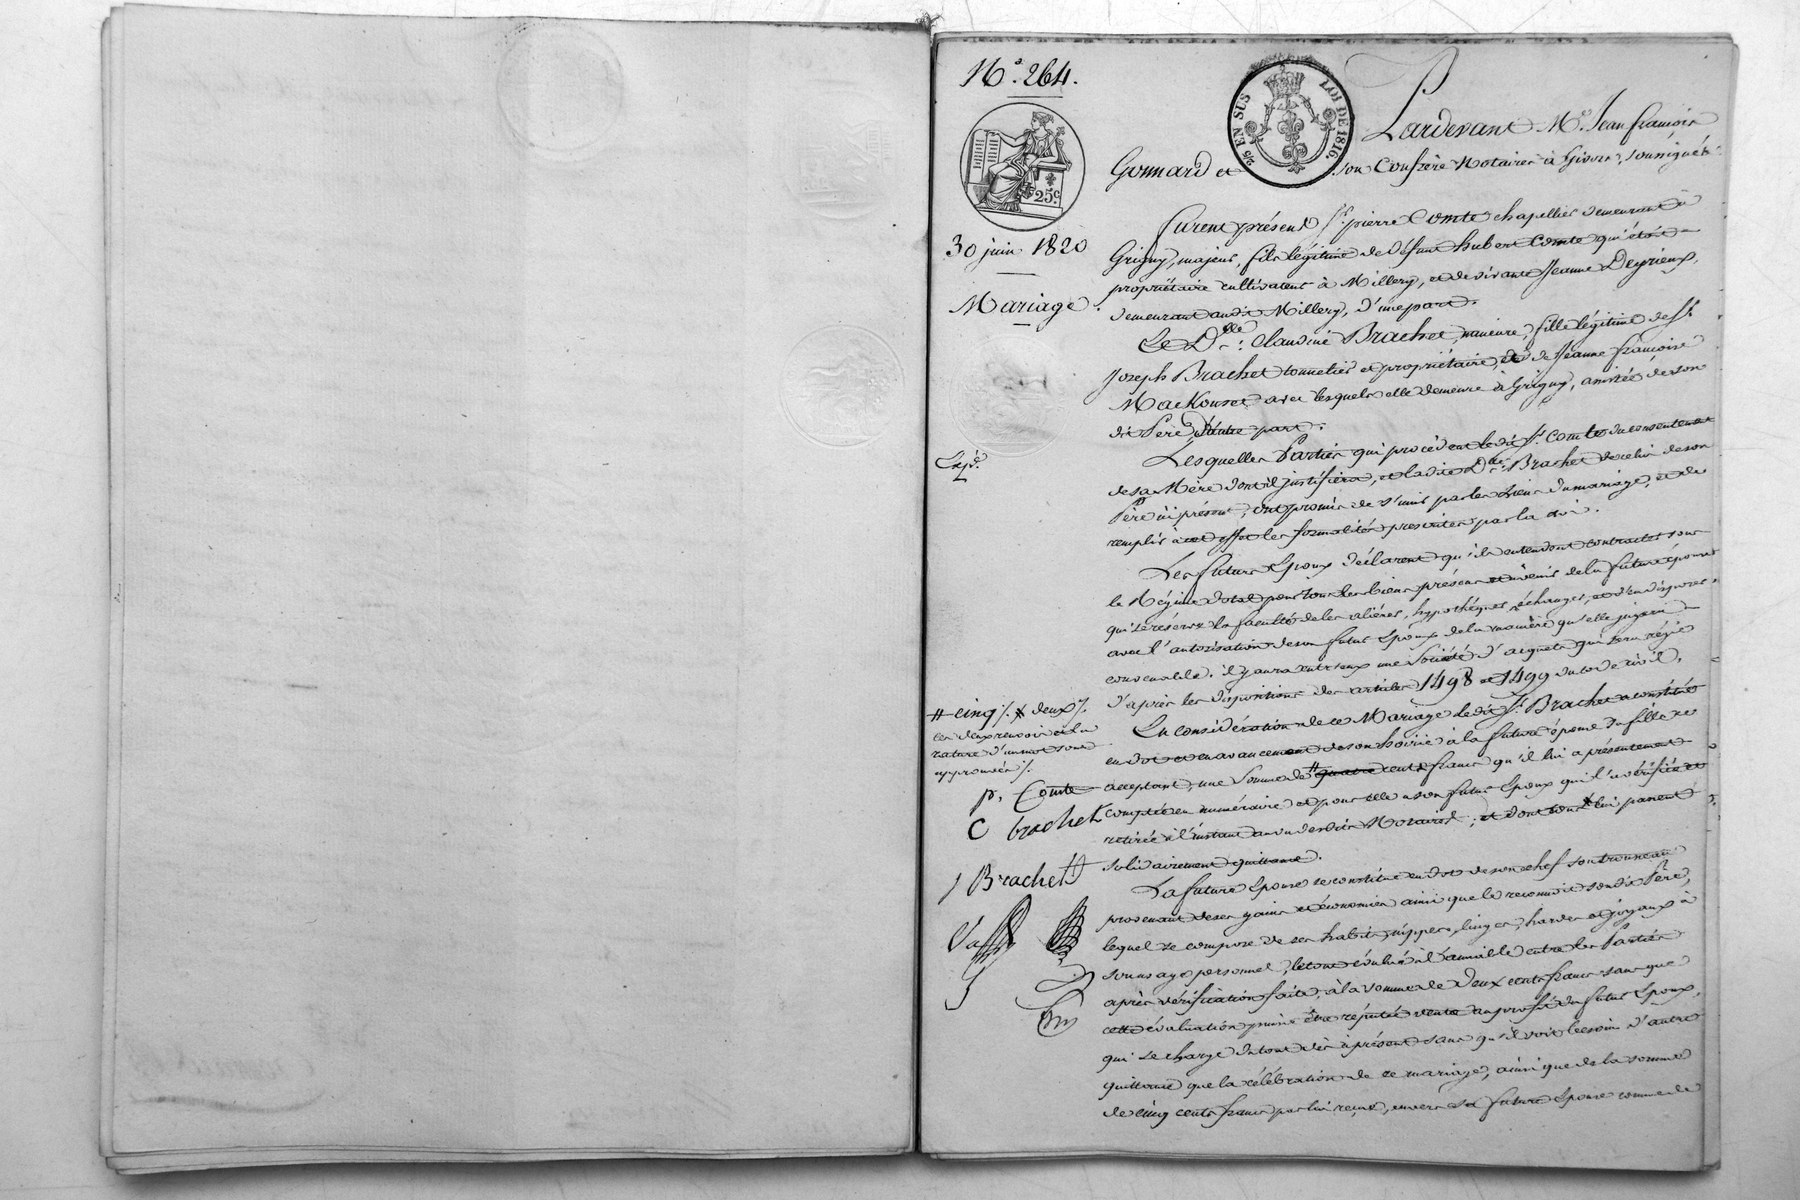 N.° 264.
25.c
30 juin 1820
Mariage.
Exp.é
2/5 EN SUS
LOI DE 1816.
Pardevant M.e Jean françois
Gonnard et son Confrère Notaires à Givors, soussignés
furent présens S.r pierre Comte chapellier demeurant à
Grigny, majeur, fils légitime de défunt hubert Comte qui étoit
propriétaire cultivateur à Millery, et de vivante Jeanne Deyrieux,
demeurant audit Millery, d'une part.
Et D.elle Claudine Brachet, mineure, fille légitime de S.r
Joseph Brachet tonnelier et propriétaire, et de Jeanne françoise
avec lesquels elle demeure à Grigny, assistée de son
dit Père, d'autre part.
Lesquelles Parties qui procèdent ledit S.r Comte du consentement
de sa Mère dont il justifiera, et ladite D.elle Brachet de celui de son
Père ici présent, ont promis de s'unir par les liens du mariage, et de
remplir à cet effet les formalités prescrites par la loi.
Les futurs Epoux déclarent qu'ils entendent contracter sous
le Régime dotal pour tous les biens présens et à venir de la future épouse
qui se réserve la faculté de les aliéner, hypothéquer, échanger, et d'en disposer
avec l'autorisation de son futur Epoux de la manière qu'elle jugera
convenable. il y aura entr'eux une Société d'acquets qui sera régie
d'après les dispositions des articles 1498 et 1499 du code civil.
En considération de ce Mariage ledit S.r Brachet a constitué
en dot et en avancement de son hoirie à la future épouse sa fille ce
acceptant, une Somme de # quatre cents francs qu'il lui a présentement
comptée en numéraire et pour elle à son futur Epoux qui l'a vérifiée et
retirée à l'instant au vu desdits Notaires; et dont tous * lui passent
solidairement quittance.
La future Epouse se constitue en dot de son chef son trousseau
provenant de ses gains et économies ainsi que le reconnoit sondit Père,
lequel se compose de ses habits, nippes, linges, hardes et joyaux à
son usage personnel, le tout évalué à l'amiable entre les Parties
après vérification faite, à la somme de Deux cents francs sans que
cette évaluation puisse être réputée vente au profit du futur Epoux,
qui se charge du tout dès à présent sans qu'il soit besoin d'autre
quittance que la célébration de ce mariage, ainsi que de la somme
de cinq cents francs par lui reçue, envers sa future Epouse comme de
# cinq /. * deux /.
les deux renvois et la
rature d'un mot sont
approuvés /.
p. Comte
C brachet
J Brachet